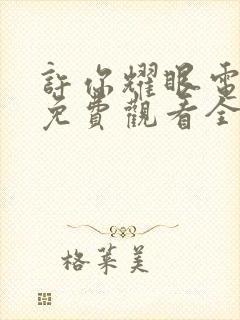 許你耀眼電
免費觀看全
格萊美